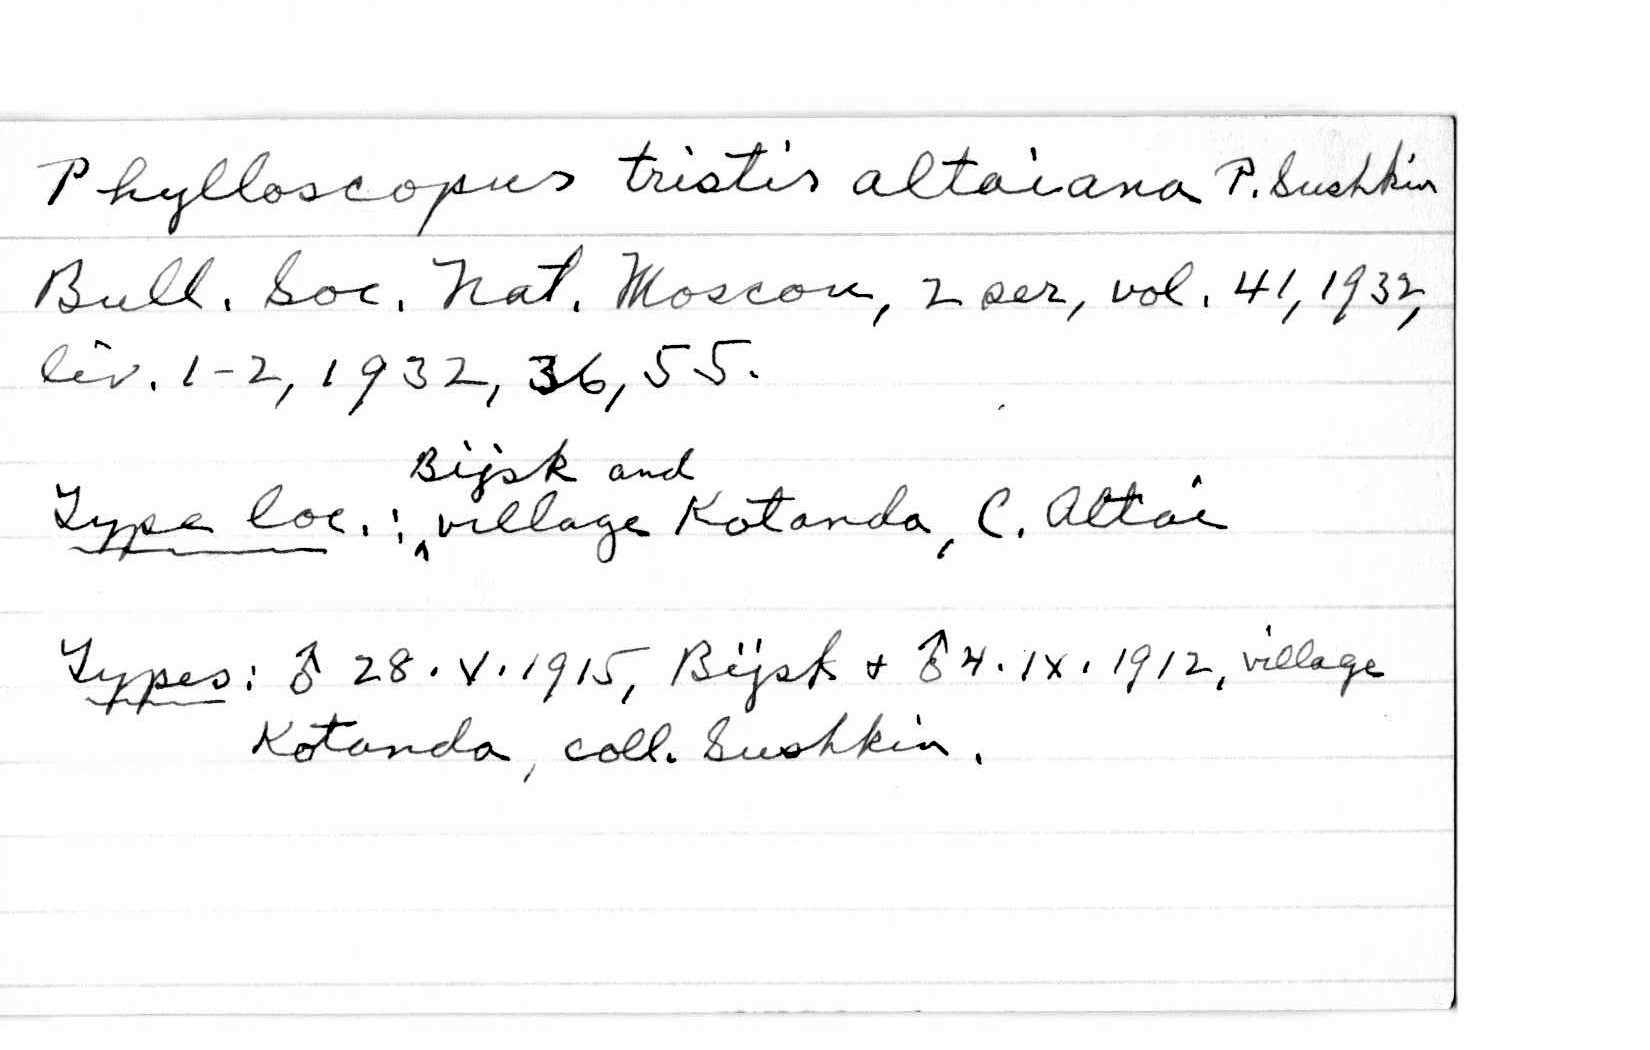 Phylloscopus tristis altaiana P. Sushkin
Bull. Soc. Nat. Moscou, 2 ser, vol. 41, 1932,
liv. 1-2, 1932, 36, 55.
Bijsk and
Type loc.: ^ village Kotanda, C. Altai
Types: ♂ 28.V.1915, Bijsk + ♂ 4.IX.1912, village
Kotanda, coll. Sushkin.